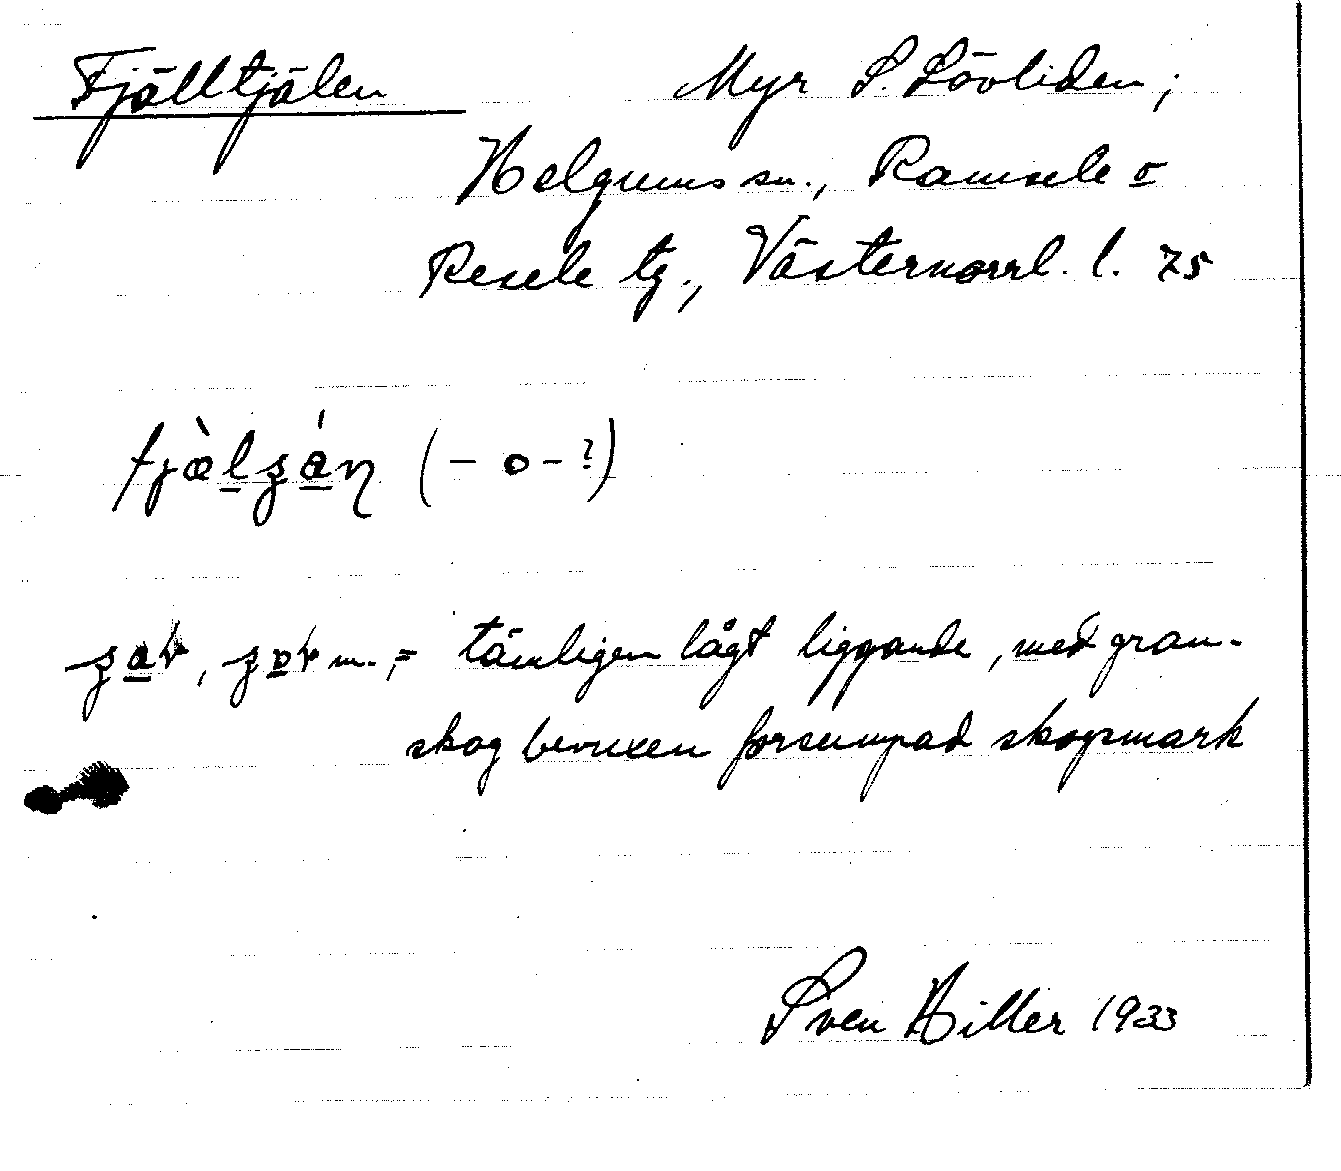 Fjälltjälen Myr S. Lövliden;
Helgums sn., Ramsele o
Resele tg., Västernorrl. l. 75
(- o - ?)
m., = tämligen lågt liggande, med gran-
skog bevuxen försumpad skogsmark
Sven Hiller 1933